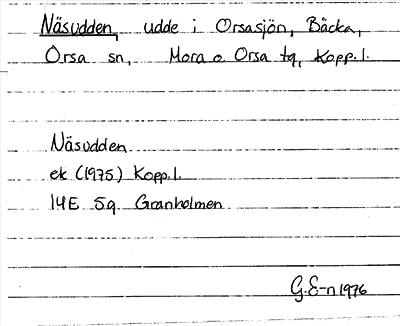 Näsudden, udde i Orsasjön, Bäcka,
Orsa sn, Mora o. Orsa tg, Kopp.l.
Näsudden
ek (1975) Kopp.l.
14E 5g Granholmen
G.E-n 1976